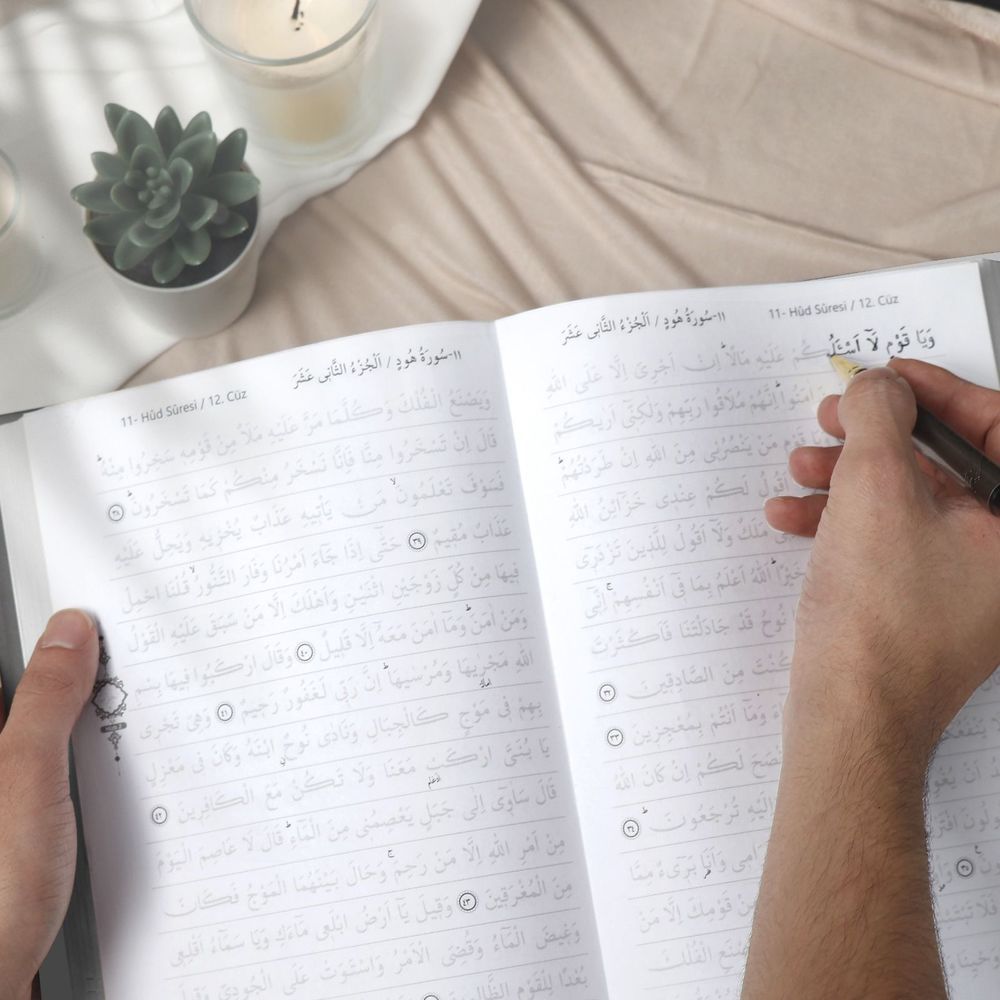 11- Hûd Sûresi / 12. Cüz
١١-سُورَةُ هُودٍ / اَلْجُزْءُ الثَّانِى عَشَرَ
وَيَا قَوْمِ لَٓا اَسْـَٔلُكُمْ عَلَيْهِ مَالًاۜ اِنْ اَجْرِىَ اِلَّا عَلَى اللّٰهِ
اٰمَنُواۜ اِنَّهُمْ مُلَاقُوا رَبِّهِمْ وَلٰكِنّٖٓى اَرٰيكُمْ
قَوْمِ مَنْ يَنْصُرُنٖى مِنَ اللّٰهِ اِنْ طَرَدْتُهُمْۜ
اَقُولُ لَكُمْ عِنْدٖى خَزَٓائِنُ اللّٰهِ
مَلَكٌ وَلَٓا اَقُولُ لِلَّذٖينَ تَزْدَرٖٓى
خَيْرًاۜ اَللّٰهُ اَعْلَمُ بِمَا فٖٓى اَنْفُسِهِمْۚ اِنّٖٓى
نُوحُ قَدْ جَادَلْتَنَا فَاَكْثَرْتَ
كُنْتَ مِنَ الصَّادِقٖينَ ﴿٣٢﴾
وَمَٓا اَنْتُمْ بِمُعْجِزٖينَ ﴿٣٣﴾
اَنْصَحَ لَكُمْ اِنْ كَانَ اللّٰهُ
يَنْفَعُ
اَنْ يُغْوِ
اِلَيْهِ تُرْجَعُونَۜ ﴿٣٤﴾
وَاَنَا۬ بَرٖٓىءٌ مِمَّا
﴿٣٥﴾
قَوْمِكَ اِلَّا مَنْ
فَلَا تَبْتَئِ
11- Hûd Sûresi / 12. Cüz
١١-سُورَةُ هُودٍ / اَلْجُزْءُ الثَّانِى عَشَرَ
وَيَصْنَعُ الْفُلْكَ وَكُلَّمَا مَرَّ عَلَيْهِ مَلَاٌ مِنْ قَوْمِهٖ سَخِرُوا مِنْهُۜ
قَالَ اِنْ تَسْخَرُوا مِنَّا فَاِنَّا نَسْخَرُ مِنْكُمْ كَمَا تَسْخَرُونَۜ ﴿٣٨﴾
فَسَوْفَ تَعْلَمُونَۙ مَنْ يَأْتٖيهِ عَذَابٌ يُخْزٖيهِ وَيَحِلُّ عَلَيْهِ
عَذَابٌ مُقٖيمٌ ﴿٣٩﴾ حَتّٰٓى اِذَا جَٓاءَ اَمْرُنَا وَفَارَ التَّنُّورُۙ قُلْنَا احْمِلْ
فٖيهَا مِنْ كُلٍّ زَوْجَيْنِ اثْنَيْنِ وَاَهْلَكَ اِلَّا مَنْ سَبَقَ عَلَيْهِ الْقَوْلُ
وَمَنْ اٰمَنَۜ وَمَٓا اٰمَنَ مَعَهُٓ اِلَّا قَلٖيلٌ ﴿٤٠﴾ وَقَالَ ارْكَبُوا فٖيهَا بِسْمِ
اللّٰهِ مَجْرٰۭيهَا وَمُرْسٰيهَاۜ اِنَّ رَبّٖى لَغَفُورٌ رَحٖيمٌ ﴿٤١﴾ وَهِىَ تَجْرٖى
بِهِمْ فٖى مَوْجٍ كَالْجِبَالِ وَنَادٰى نُوحٌ ابْنَهُ وَكَانَ فٖى مَعْزِلٍ
يَا بُنَىَّ ارْكَبْ مَعَنَا وَلَا تَكُنْ مَعَ الْكَافِرٖينَ ﴿٤٢﴾
قَالَ سَاٰوٖٓى اِلٰى جَبَلٍ يَعْصِمُنٖى مِنَ الْمَٓاءِۜ قَالَ لَا عَاصِمَ الْيَوْمَ
مِنْ اَمْرِ اللّٰهِ اِلَّا مَنْ رَحِمَۚ وَحَالَ بَيْنَهُمَا الْمَوْجُ فَكَانَ
مِنَ الْمُغْرَقٖينَ ﴿٤٣﴾ وَقٖيلَ يَٓا اَرْضُ ابْلَعٖى مَٓاءَكِ وَيَا سَمَٓاءُ اَقْلِعٖى
وَغٖيضَ الْمَٓاءُ وَقُضِىَ الْاَمْرُ وَاسْتَوَتْ عَلَى الْجُودِىِّ وَقٖيلَ
بُعْدًا لِلْقَوْمِ الظَّالِمٖينَ